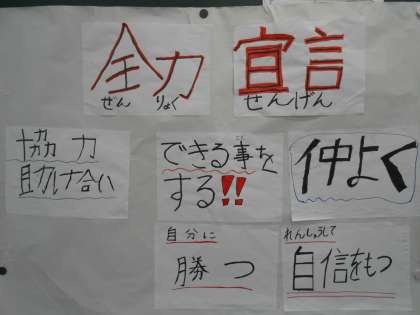 全力 宣言
ぜんりょく せんげん
協力
助け合い
できる事を
する!!
仲よく
自分に
勝つ
れんしゅうして
自信をもつ